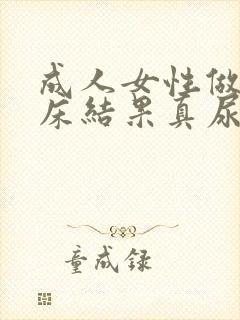 成人女性做
床結果真尿
童成録